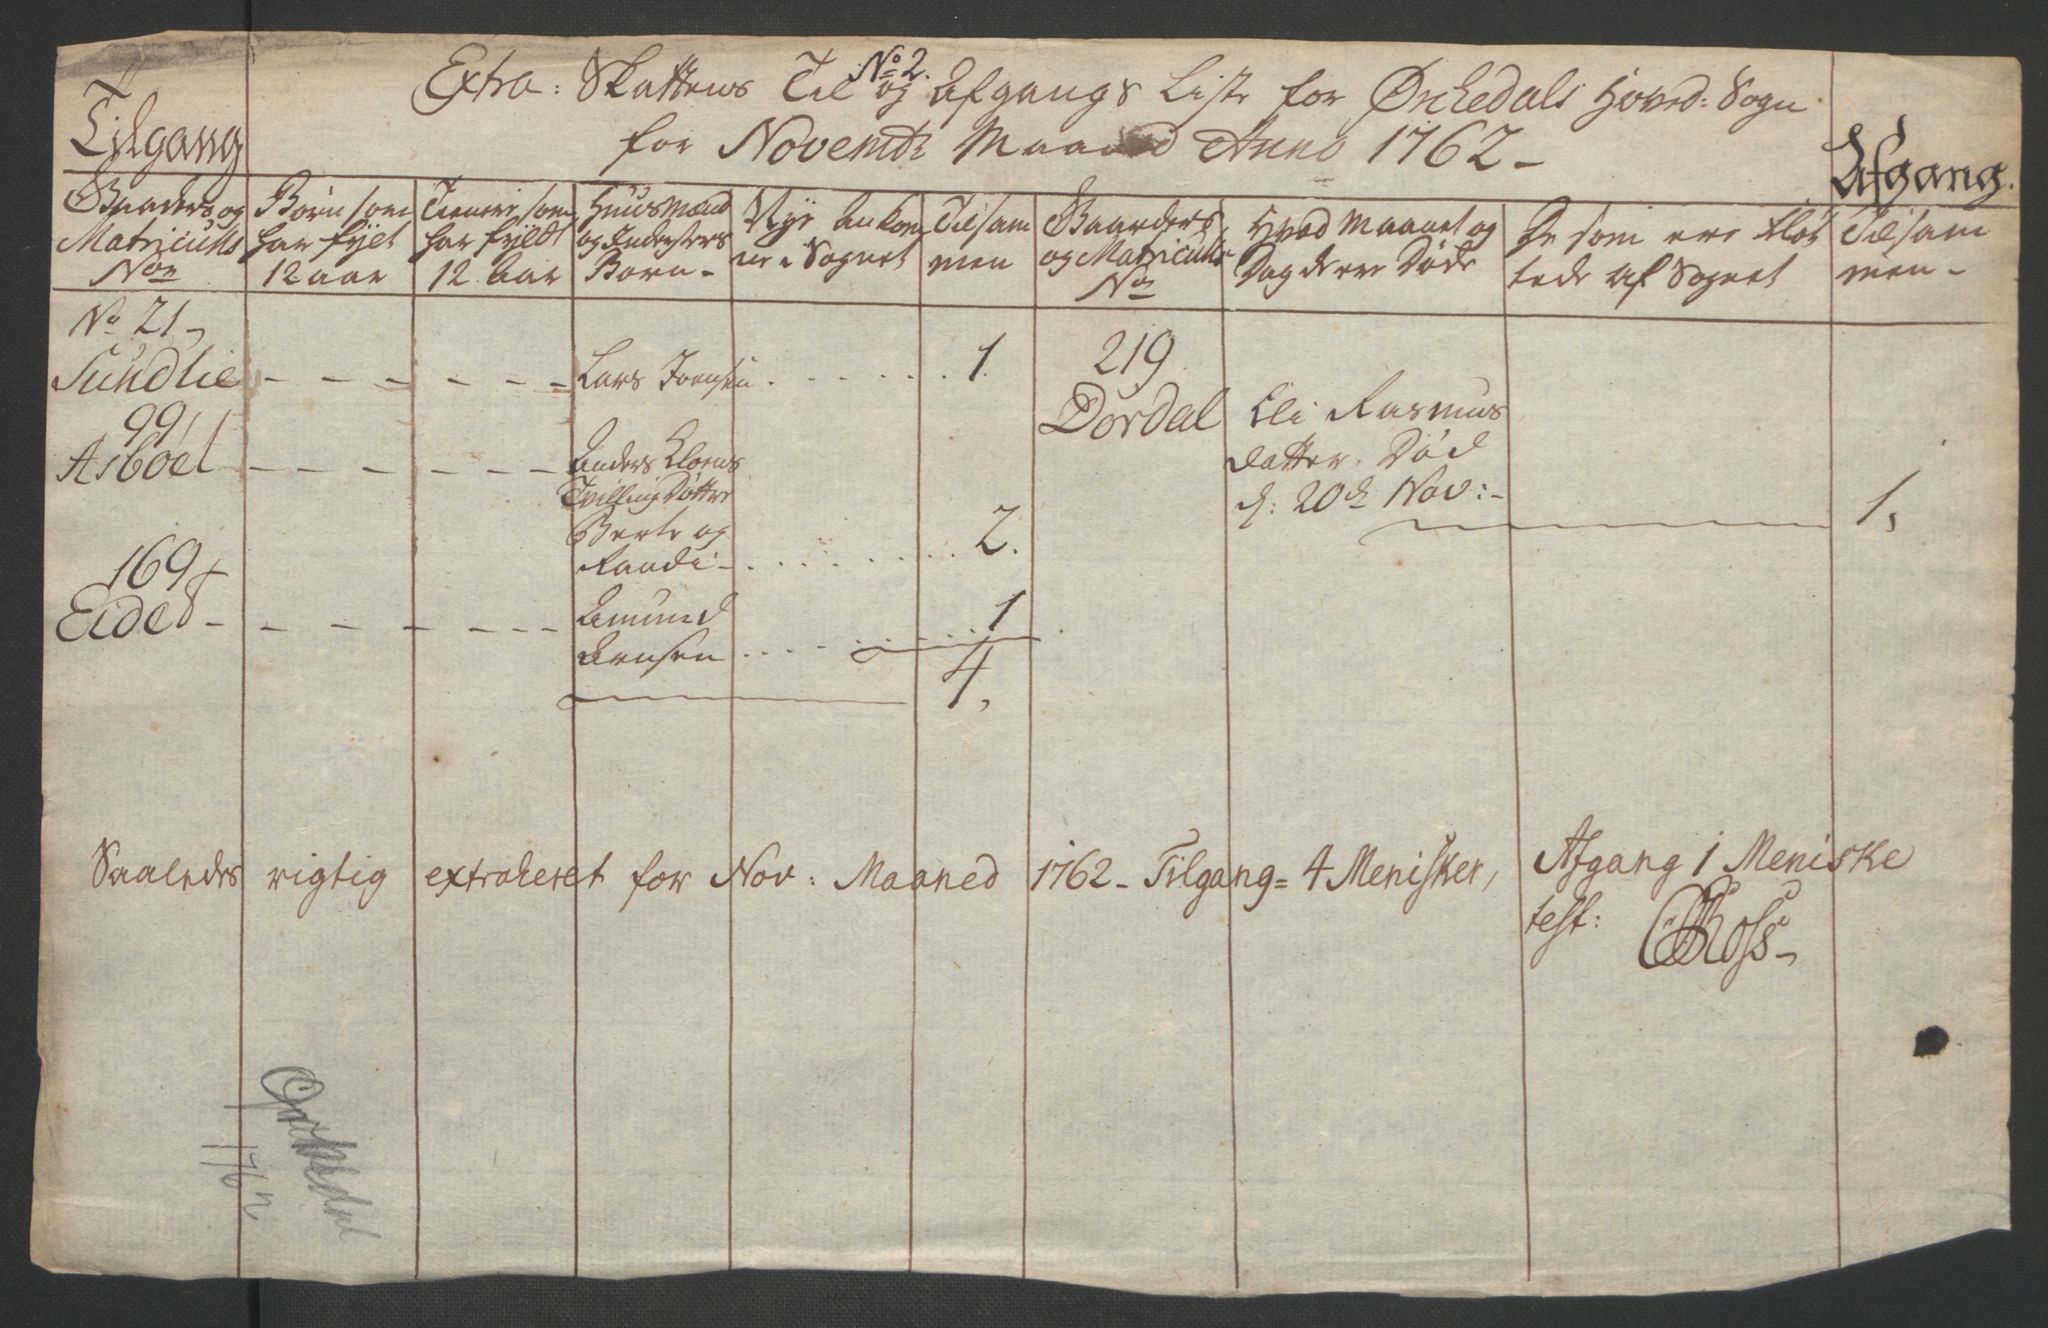 No 2.
Extra: Skattens Til og Afgangs Liste for Ørchedals Hoved: Sogn
for Novembr Maaned Anno 1762 -
Tilgang
Afgang.
Gaarders og Matriculs No
Børn som har fylt 12 aar
Tienere som har fyldt 12 Aar
Huusmænd og Inderster Børn -
Nye Ankom ne i Sognet
Tilsam men
Gaarders og Matriculs No
Hvad Maanet og Dag de ere Døde
De som ere fløt tede af Sognet
Tilsam men -
No 21 -
Sundlie - - - - - - - Lars Joensen . . . . . . 1.
99,
Asboel - - - - - - Anders Cloens
Tvilling Døttre
Berte og
Raadi - . . . . . . . . 2.
169
Eidet - - - - - - - Amund
Arnsen . . . . . . . 1
4,
219
Dordal
Eli Rasmus
datter, Død
d: 20de Nov: -
1,
Saaledes rigtig extraheret for Nov: Maaned 1762 - Tilgang = 4 Menisker, Afgang 1 Meniske
test:
Ross -
Orkedal
1762